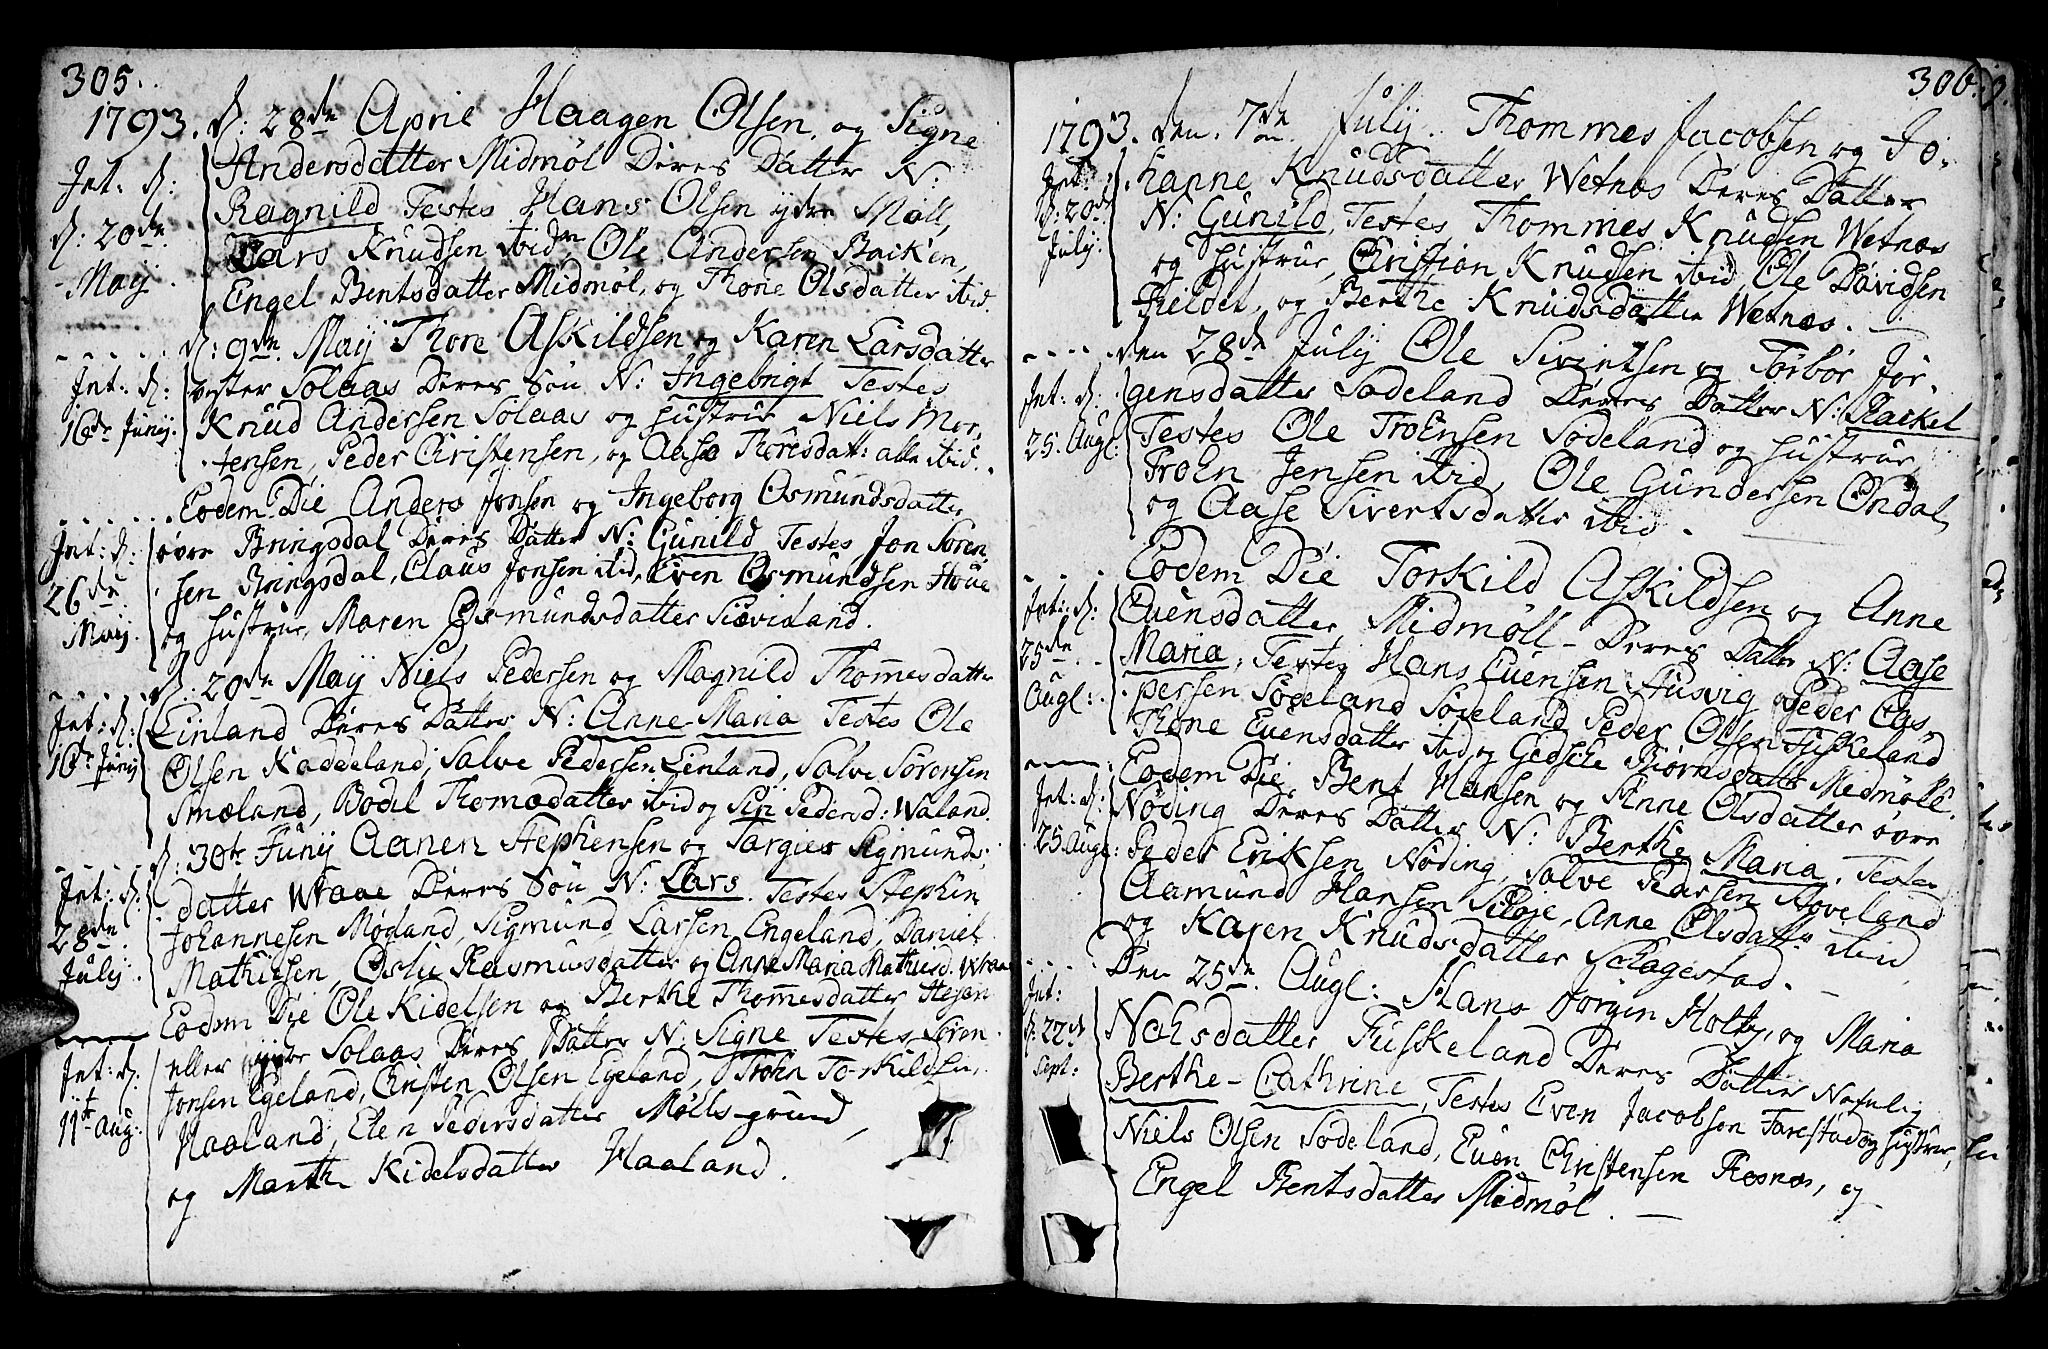 305.
1793. d: 28de April Haagen Olsen, og Signe
Int. d: Andersdatter Midmøl Deres Datter N:
d: 20de Ragnild Testes Hans Olsen ydre Møll,
May. Lars Knudsen ibid, Ole Andersen Backen,
Engel Bentsdatter Midmøl, og Thone Olsdatter ibid.
d: 9de May Thore Askildsen og Karen Larsdatter
Int: d: vester Solaas Deres Søn N: Ingebrigt Testes
16de Junij. Knud Andersen Solaas og Hustrue Niels Mor,
tensen, Peder Christensen, og Aase Thoresdatt: alle ibid.
Eodem Die Anders Jonsen og Ingeborg Osmundsdatter
Int: d: øvre Bringsdal Deres Datter N: Gunild Testes Jon Søren
26de sen Bringsdal, Claus Jonsen ibid, Even Osmundsen Houe
May. og Hustrue, Maren Osmundsdatter
d: 20de May Niels Pedersen og Magnild Thommesdatter
Int: d: Einland Deres Datter N: Anne Maria Testes Ole
16de Junij Olsen Kaddeland, Salve Pedersen Einland, Salve Sørensen
Smæland, Bodil Thomædatter ibid og Siri Pedersd: Waland.
d: 30te Junij Aanen Stephensen og Targier Sigmunds,
Int: d: datter Wraae Deres Søn N: Lars. Testes Stephen
28de Johannesen Møgland, Sigmund Larsen Engeland, Daniel
July Mathiesen, Oslu Rasmusdatter og Anne Maria Mathiesd. Wraae
Eodem Die Ole Kidelsen og Berthe Thommesdatter
Int: d: eller ydre Solaas Deres Datter N: Signe Testes Søren
11te Aug: Jonsen Egeland, Christen Olsen Egeland, Troen Torkildsen
Haaland, Elen Pedersdatter Møllsgrund,
og Marthe Kidelsdatter Haaland.
306.
1793. den. 7de July. Thommes Jacobsen og Jo,
Int: hanne Knudsdatter Wetnæs Deres Datter
d: 20de N: Gunild, Testes Thommes Knudsen Wetnæs
July: og Hustrue, Christian Knudsen ibid, Ole Davidsen
og Berthe Knudsdatter Wetnæs.
den 28de July Ole Sivertsen og Torbor Jør,
Int: d: gensdatter Sødeland Deres Datter N: Rackel
25. Augl: Testes Ole Troensen Sødeland og Hustrue
Troen Jensen ibid, Ole Gundersen Øndal,
og Aase Sivertsdatter ibid.
Eodem Die Torkild Askildsen og Anne
Int: d: Euensdatter Midmøll Deres Datter N: Aase
25de Maria, Testes Hans Euensen Husvig Peder Cas,
Augl: persen Sødeland Sødeland, Peder Olsen Fuskeland
Thone Euensdatter ibid, og Gedsche Biørnsdatter Midmøll.
Eodem Die, Bent Hansen og Anne Olsdatter øvre
Int: d: Nøding Deres Datter N: Berthe Maria, Testes
25 Augl: Peder Eriksen Nøding, Salve Pedersen Hoveland
Aamund Hansen, Anne Olsdatter ibid
og Karen Knudsdatter Schagestad.
Den 25de Augl: Hans Jørgen Holby, og Maria
Int: Nahsdatter Fuskeland Deres Datter Nafnlig
d: 22de Berthe-Cathrine, Testes Even Jacobsen Farestad og Hustrue,
Sept: Niels Olsen Sødeland, Euen Christensen Rosnæs, og
Engel Bentsdatter Midmøl.